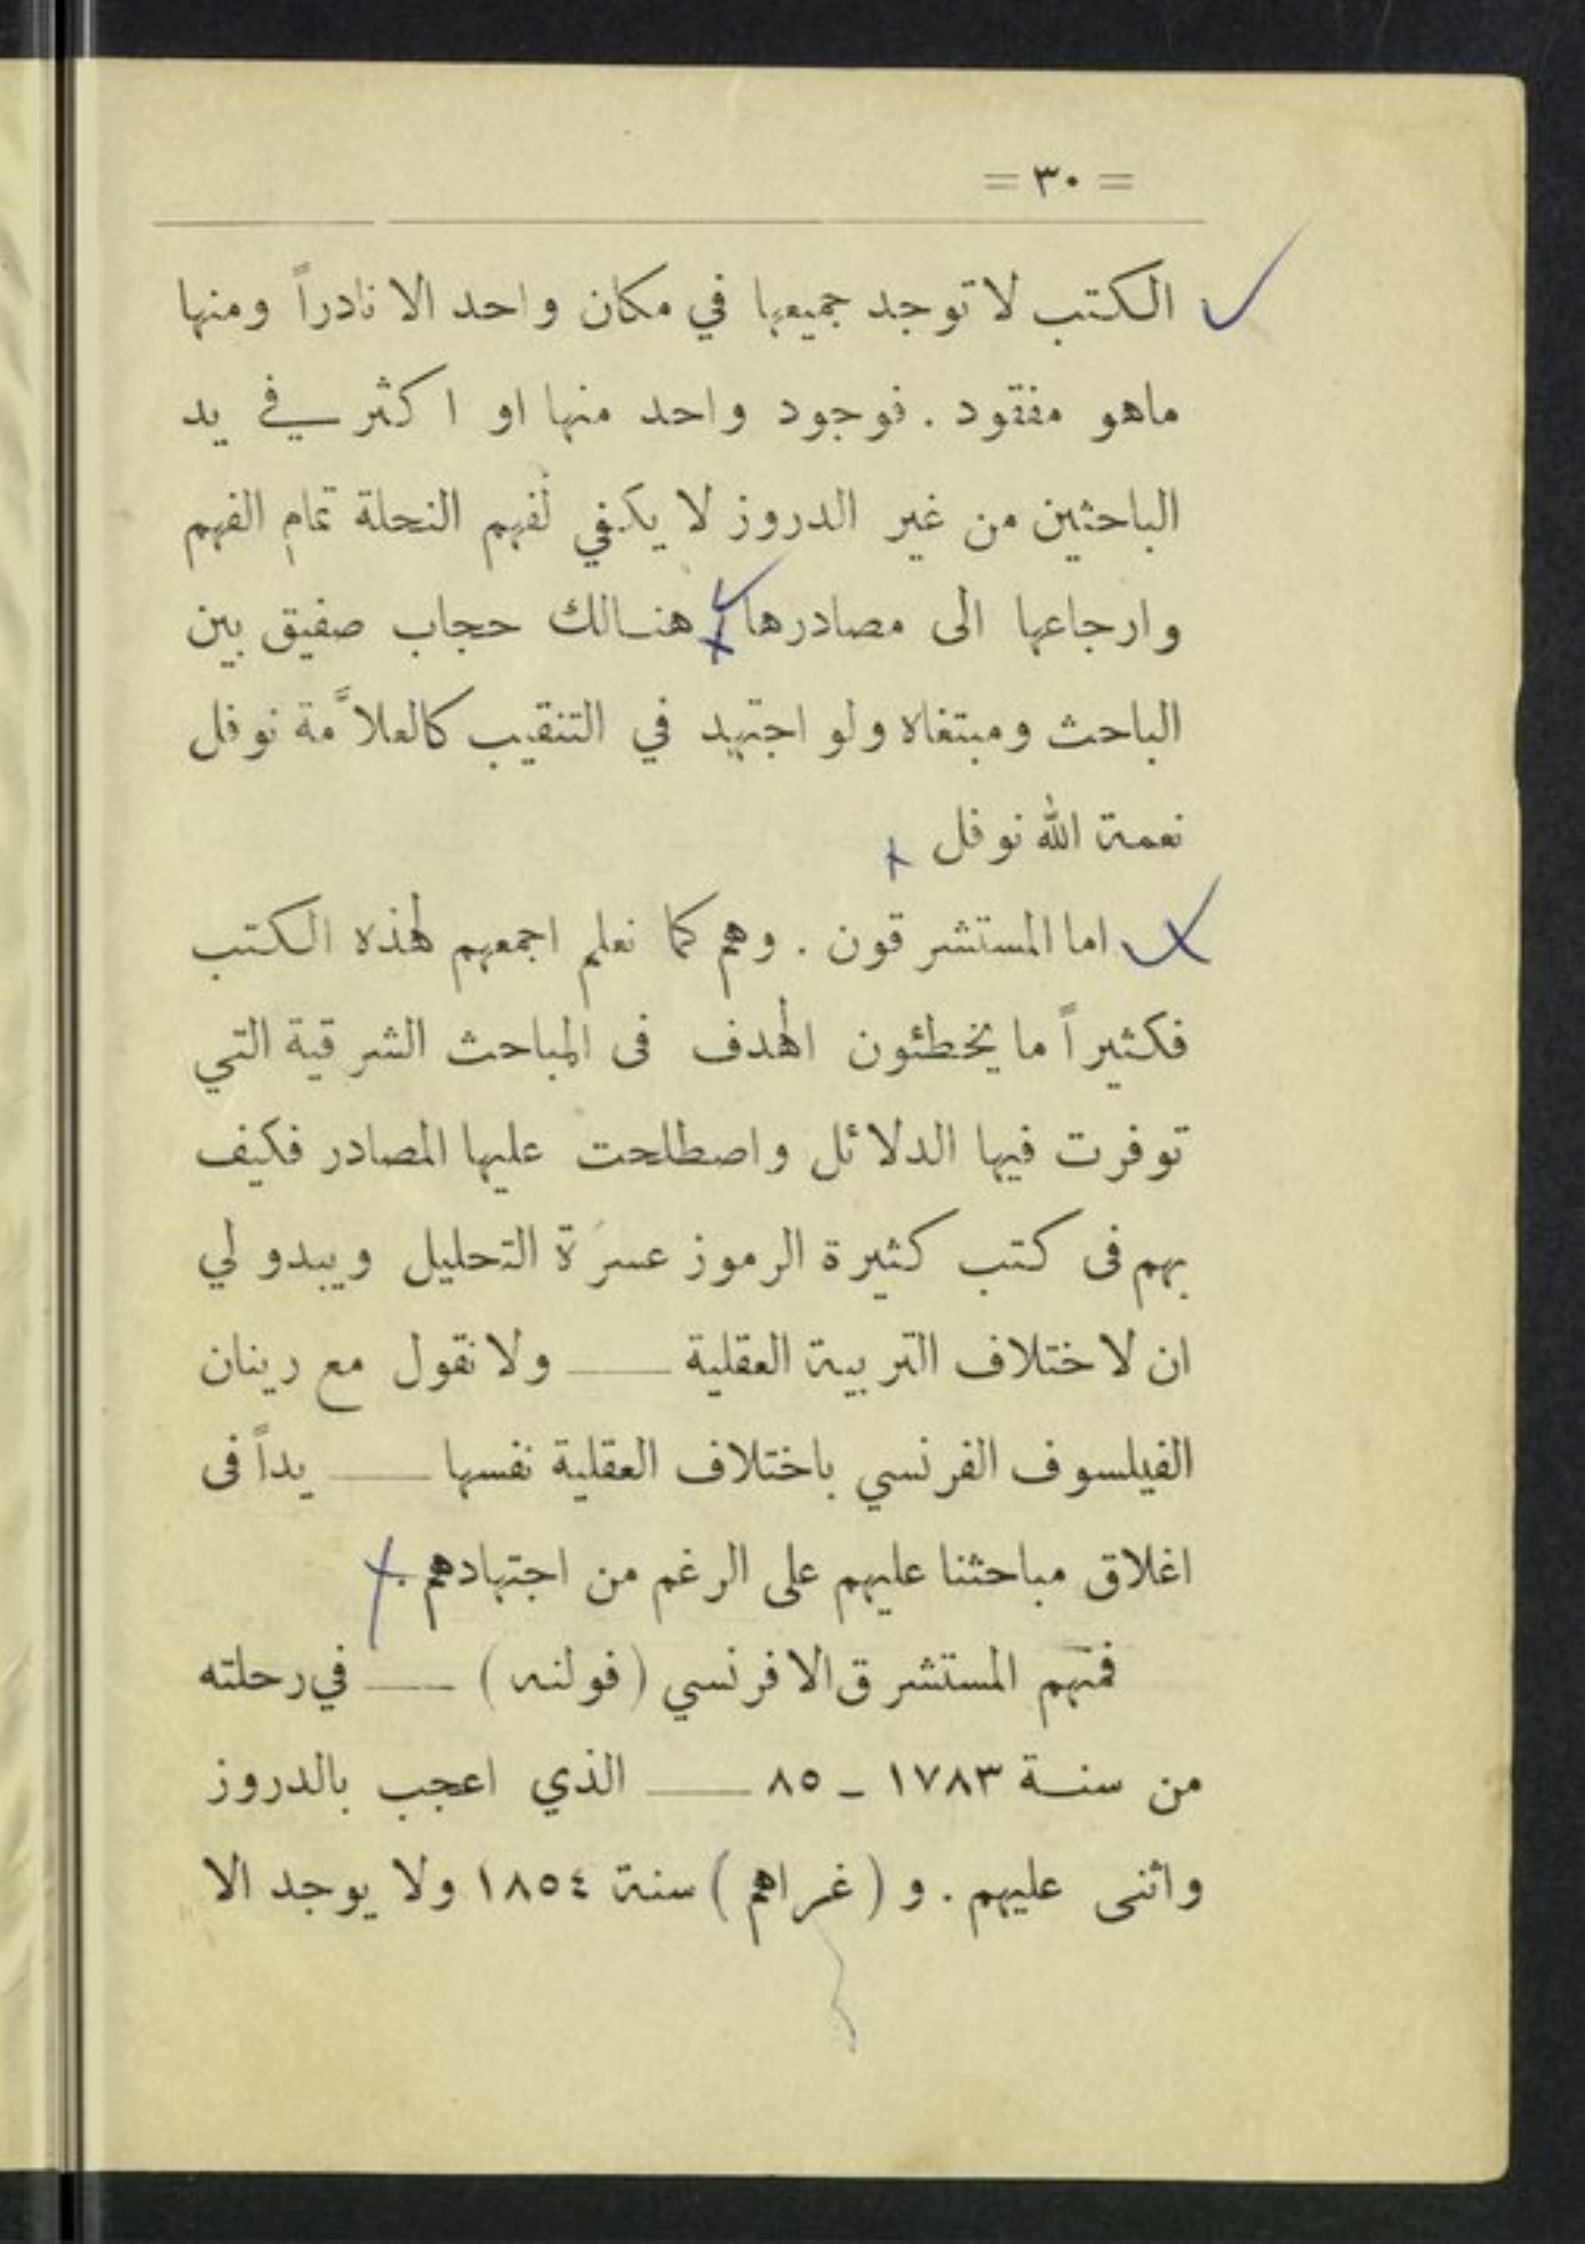 = ٣٠ =
الكتب لا توجد جميعها في مكان واحد الا نادراً ومنها
ماهو مفقود . فوجود واحد منها او اكثر في يد
الباحثين من غير الدروز لا يكفي لفهم النحلة تمام الفهم
وارجاعها الى مصادرها هنالك حجاب صفيق بين
الباحث ومبتغاه ولو اجتهد في التنقيب كالعلاَّمة نوفل
نعمة الله نوفل
اما المستشرقون . وهم كما نعلم اجمعهم لهذه الكتب
فكثيراً ما يخطئون الهدف فى المباحث الشرقية التي
توفرت فيها الدلائل واصطلحت عليها المصادر فكيف
بهم فى كتب كثيرة الرموز عسرَة التحليل ويبدو لي
ان لاختلاف التربية العقلية — ولا نقول مع رينان
الفيلسوف الفرنسي باختلاف العقلية نفسها — يداً فى
اغلاق مباحثنا عليهم على الرغم من اجتهادهم .
فمنهم المستشرق الافرنسي ( فولنه ) — في رحلته
من سنة ١٧٨٣ - ٨٥ — الذي اعجب بالدروز
واثنى عليهم . و ( غراهم ) سنة ١٨٥٤ ولا يوجد الا